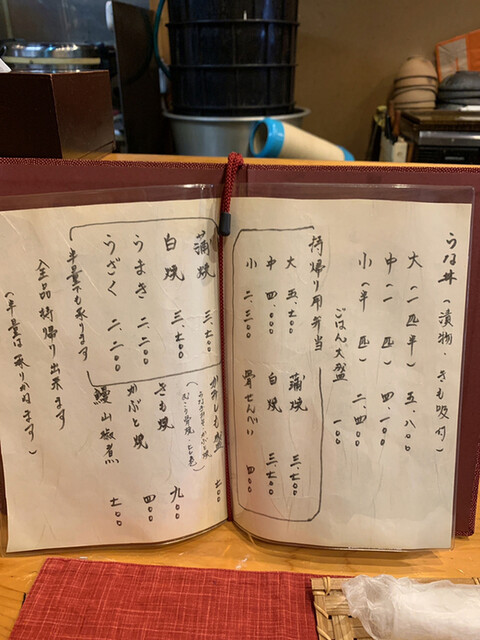 うな丼（漬物・きも吸付）
大（一匹半）五、八〇〇
中（一匹）四、一〇〇
小（半匹）二、四〇〇
ごはん大盛 一〇〇
持帰り用弁当
大 五、七〇〇
中 四、〇〇〇
小 二、三〇〇
蒲焼 三、七〇〇
白焼 三、七〇〇
骨せんべい 四〇〇
蒲焼 三、七〇〇
白焼 三、七〇〇
うまき 二、二〇〇
うざく 二、二〇〇
半量でも承ります
全品持帰り出来ます
（半量は承りかねます）
盛 七〇〇
きも焼 九〇〇
かぶと焼 四〇〇
鰻山椒煮 七〇〇